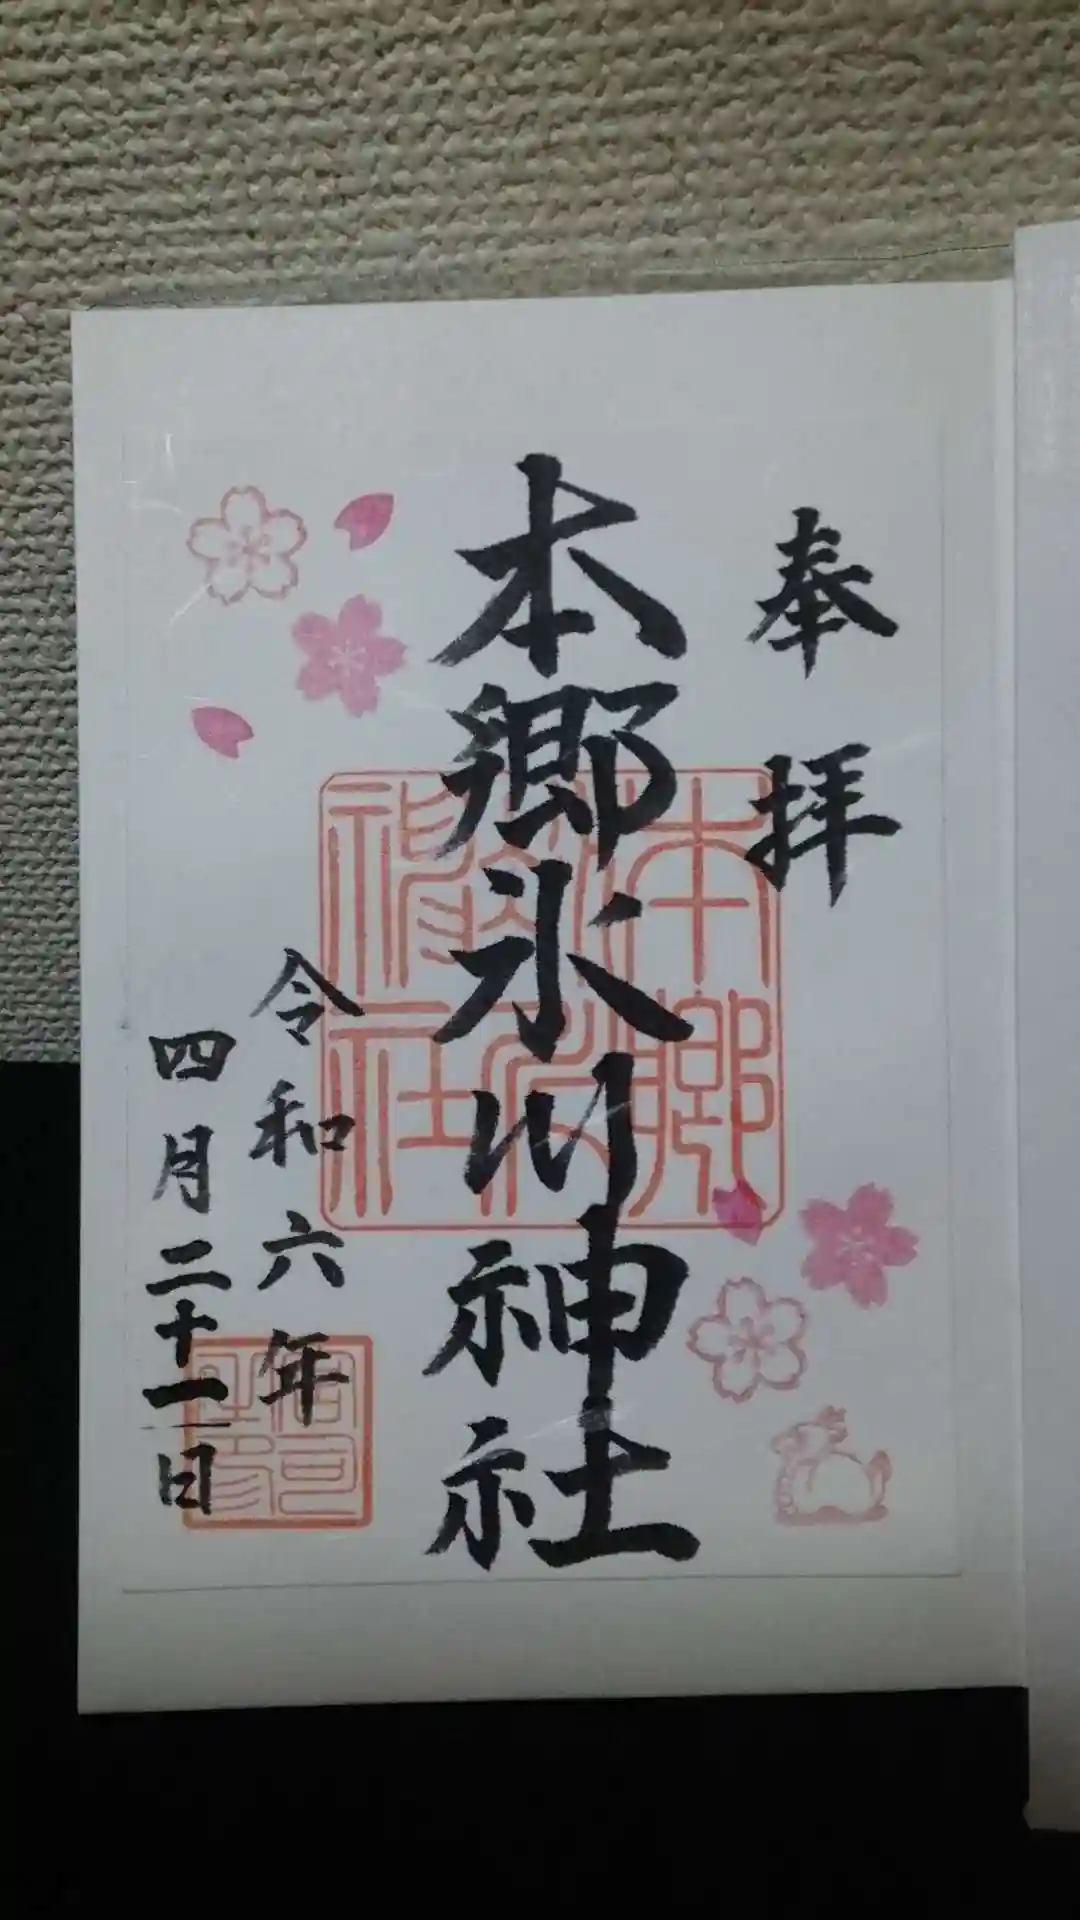 奉拝
本郷氷川神社
令和六年
四月二十一日
本郷
氷川
神社